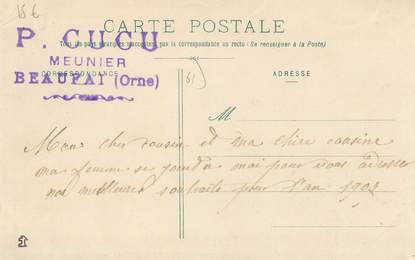 15 €
CARTE POSTALE
Tous les pays étrangers n'acceptent pas la correspondance au recto (Se renseigner à la Poste)
P. CUCU
MEUNIER
BEAUFAI (Orne)
CORRESPONDANCE
61
ADRESSE
M
Mon cher cousin et ma chère cousine
ma femme se joint à moi pour vous adresser
nos meilleurs souhaits pour l'an 1904